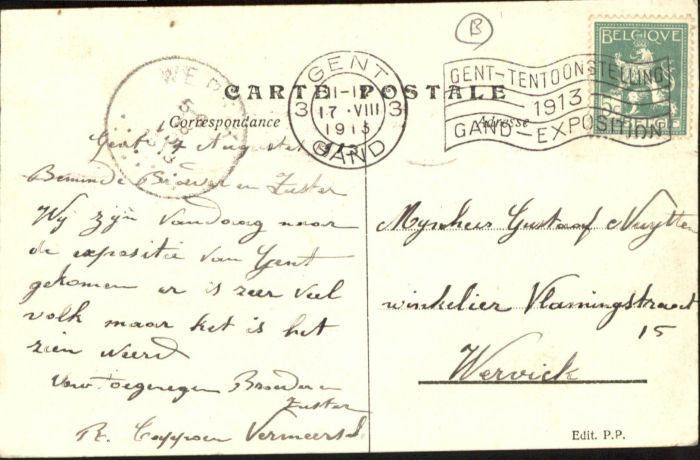 B
BELGIQUE
5c
BELGIË
GENT
11-1
3 17 ·VIII 3
1913
GAND
GENT-TENTOONSTELLING
1913
GAND-EXPOSITION
WER
CARTE POSTALE
Correspondance
Adresse
Gent Augustus
Beminde Broeder en Zuster
Wij zijn vandaag naar
de expositie van Gent
gekomen er is zeer veel
volk maar het is het
zien weerd
Uw toegenegen Broeder en
Zuster
R. Coppoen Vermeersch
Mynheer Gustaaf Nuytten
winkelier Vlamingstraat
15
Wervick
Edit. P.P.